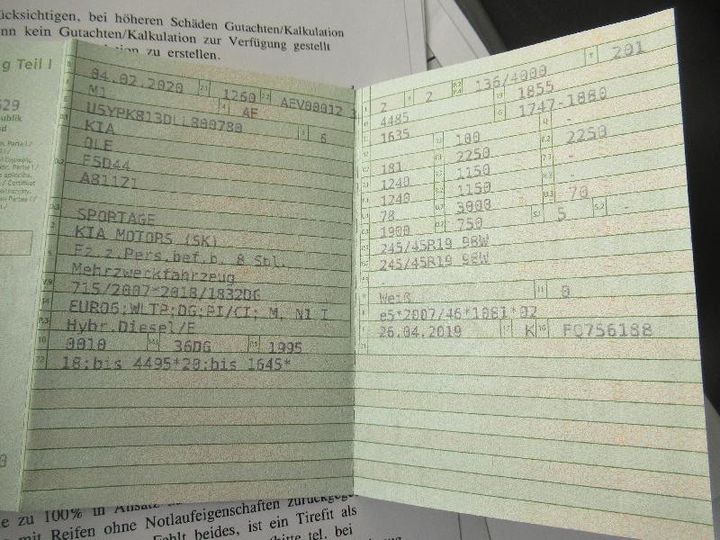 cksichtigen, bei höheren Schäden Gutachten/Kalkulation
nn kein Gutachten/Kalkulation zur Verfügung gestellt
zu erstellen.
g Teil I
629
04.02.2020 1260 AEV00012 3
M1 AE
U5YPK813DLL800780 6
KIA
QLE
F5D44
A81121
SPORTAGE
KIA MOTORS (SK)
Fz.z.Pers.bef.b. 8 Spl.
Mehrzweckfahrzeug
715/2007*2018/1832DG
EURO6;WLTP;DG;PI/CI; M, N1 I
Hybr.Diesel/E
0010 36DG 1995
18:bis 4495*20:bis 1645*
2 2 136/4000 201
4485 1855
1635 1747-1880
- 100 -
181 2250 2250
1240 1150 -
1240 1150 -
78 3000 70
1900 750 5 -
245/45R19 98W
245/45R19 98W
-
Weiß 0
e5*2007/46*1081*02
26.04.2019 K FQ756188
e zu 100% in Ansatz
mit Reifen ohne Notlaufeigenschaften zurückgege
Fehlt beides, ist ein Tirefit als
tel. bei